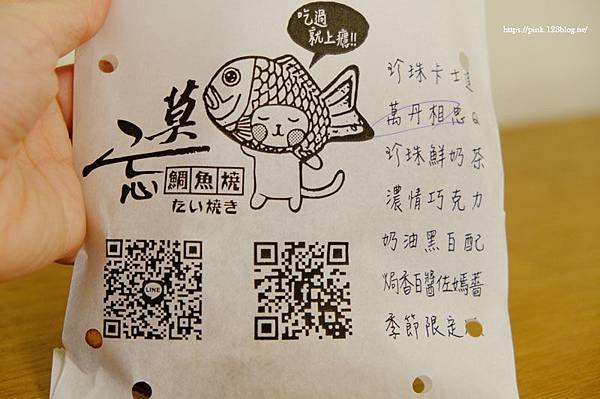 https://pink.123blog.tw/
吃過
就上癮!!
莫忘
鯛魚燒
たい焼き
LINE
珍珠卡士達
萬丹相思Q
珍珠鮮奶茶
濃情巧克力
奶油黑白配
焗香白醬佐嫣薔
季節限定